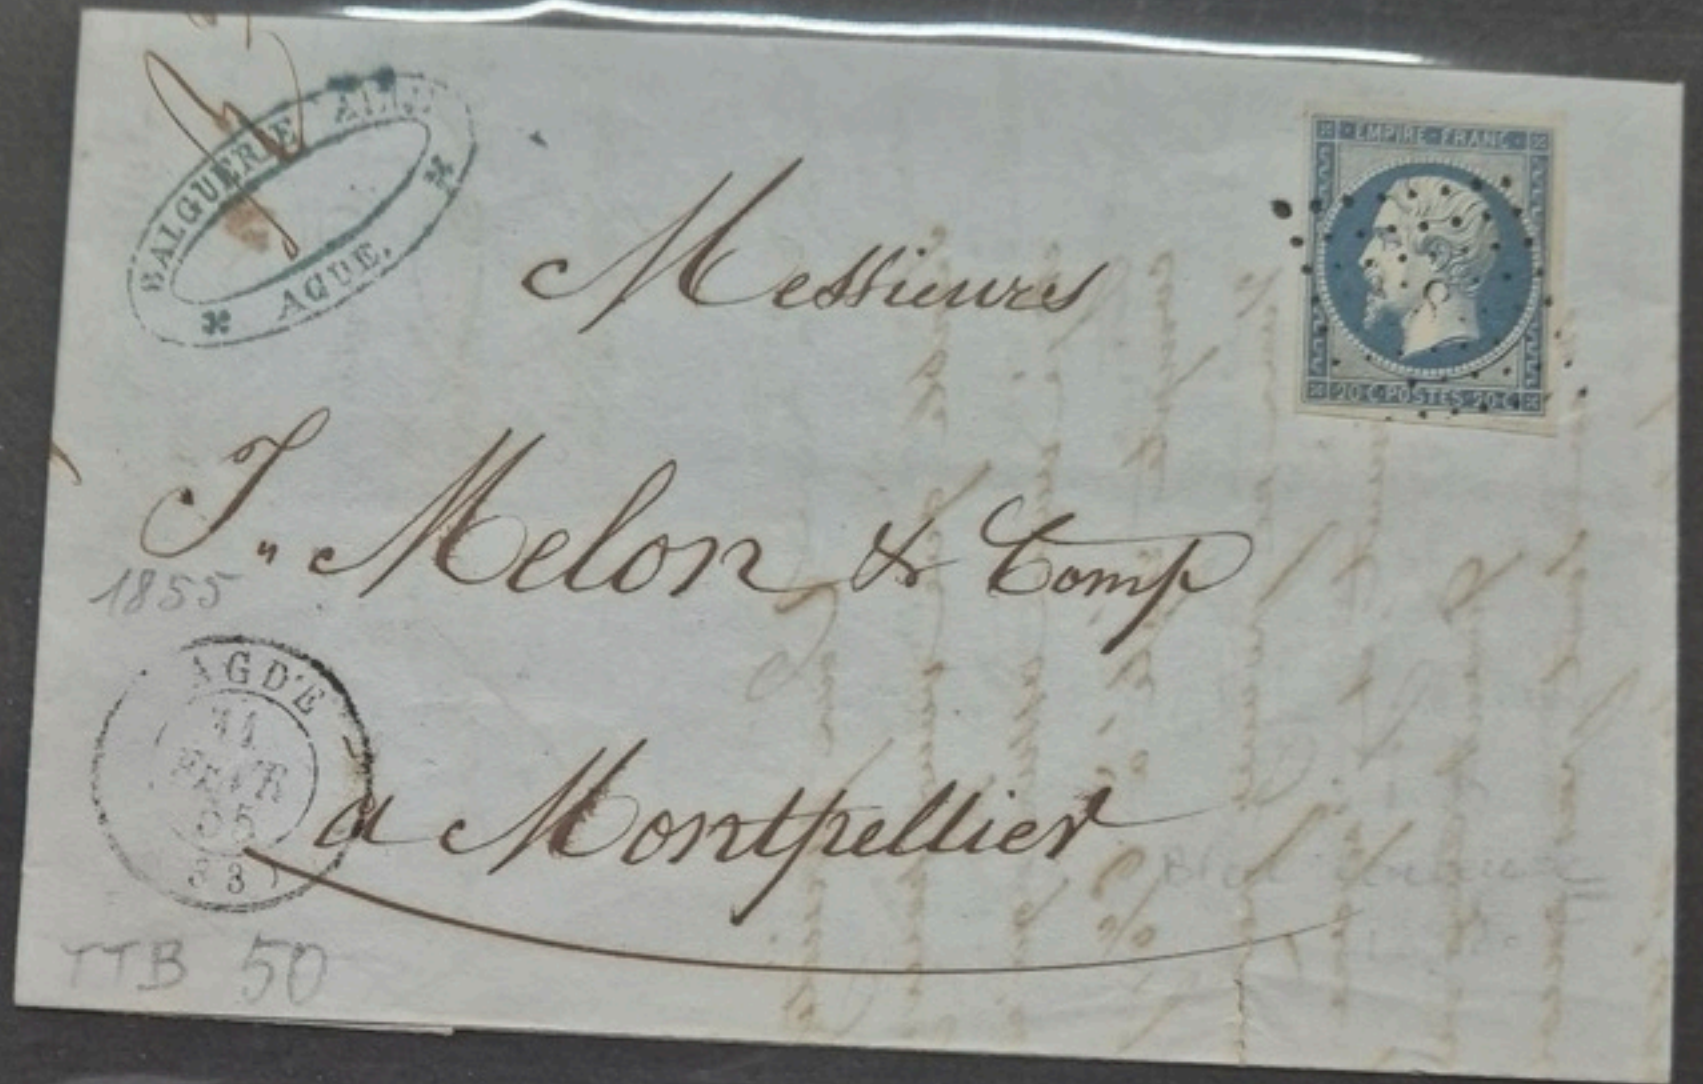 BALGUERIE
AGDE.
EMPIRE · FRANC ·
20 C · POSTES · 20 C
Messieurs
J" Melon & Comp
1855
AGDE
11
FEVR
55
(33)
a Montpellier
TTB 50